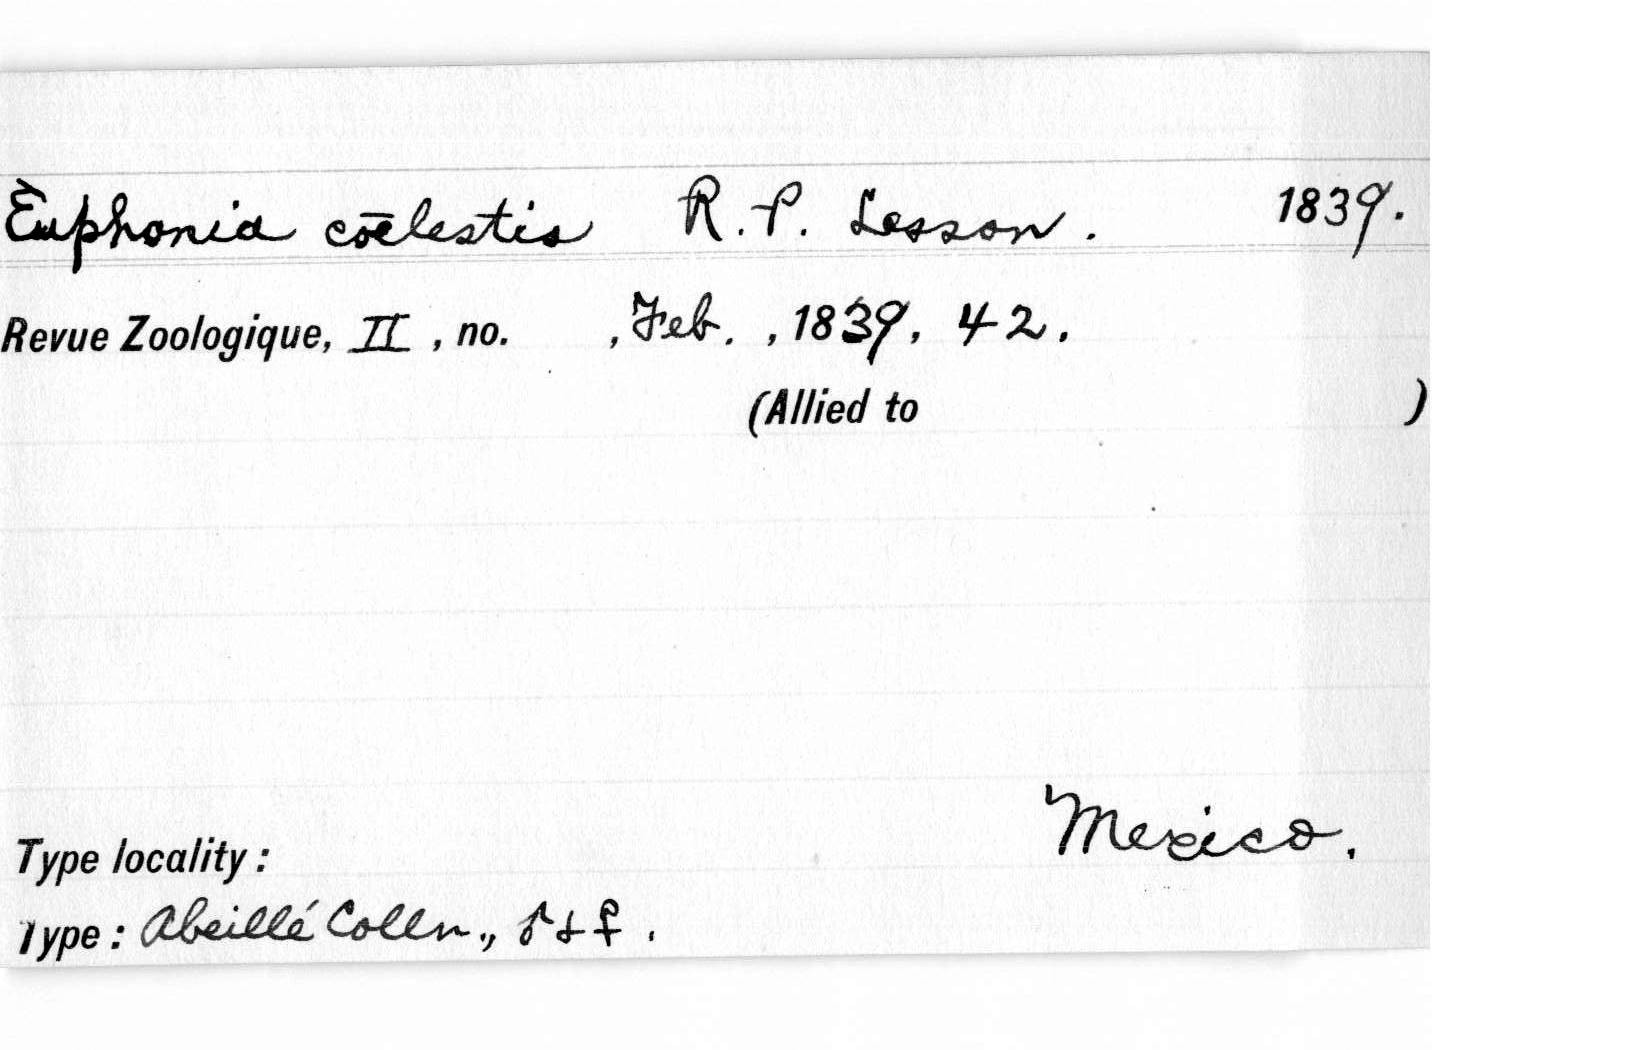 Euphonia cœlestis R. P. Lesson. 1839.
Revue Zoologique, II, no. , Feb. , 1839, 42.
(Allied to )
Mexico.
Type locality :
Type : Abeillé Colln., ♂ & ♀.